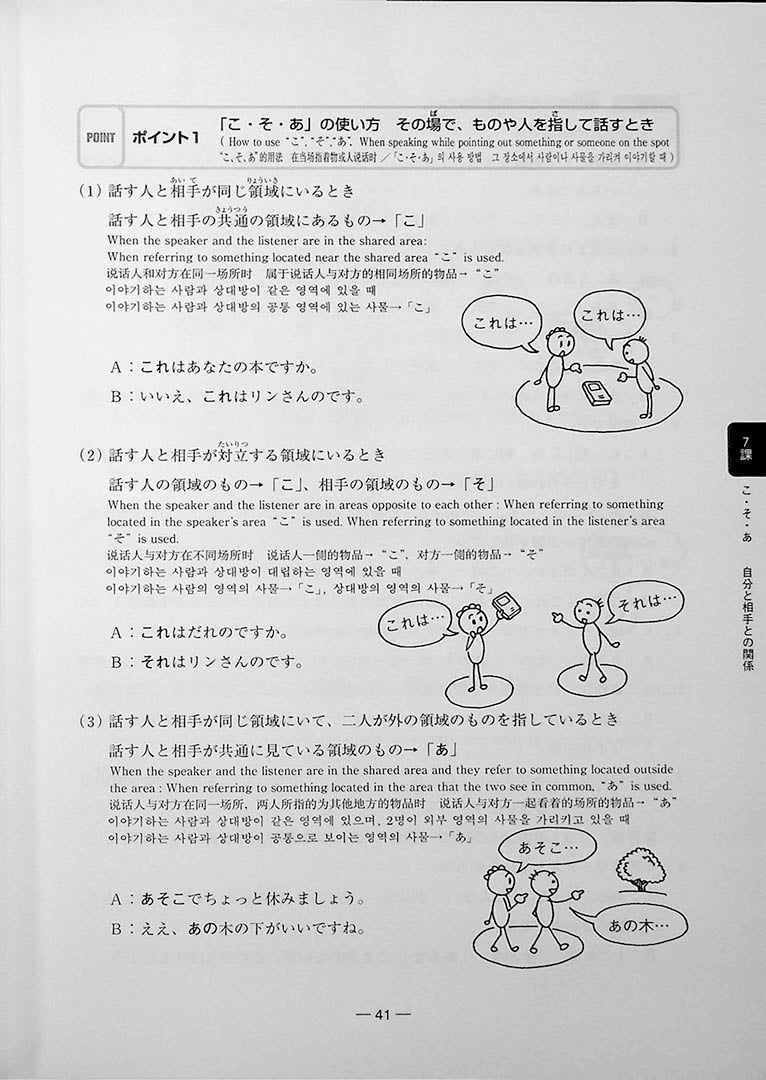 POINT ポイント1 「こ・そ・あ」の使い方　その場で、ものや人を指して話すとき
( How to use “こ”, “そ”, “あ”. When speaking while pointing out something or someone on the spot
“こ、そ、あ”的用法　在当场指着物或人说话时 ／「こ・そ・あ」의 사용 방법　그 장소에서 사람이나 사물을 가리켜 이야기할 때 )
(1) 話す人と相手が同じ領域にいるとき
話す人と相手の共通の領域にあるもの→「こ」
When the speaker and the listener are in the shared area:
When referring to something located near the shared area “こ” is used.
说话人和对方在同一场所时　属于说话人与对方的相同场所的物品→ “こ”
이야기하는 사람과 상대방이 같은 영역에 있을 때
이야기하는 사람과 상대방의 공통 영역에 있는 사물→「こ」
これは…
これは…
A：これはあなたの本ですか。
B：いいえ、これはリンさんのです。
(2) 話す人と相手が対立する領域にいるとき
話す人の領域のもの→「こ」、相手の領域のもの→「そ」
When the speaker and the listener are in areas opposite to each other : When referring to something
located in the speaker's area “こ” is used. When referring to something located in the listener's area
“そ” is used.
说话人与对方在不同场所时　说话人一侧的物品→ “こ”, 对方一侧的物品→ “そ”
이야기하는 사람과 상대방이 대립하는 영역에 있을 때
이야기하는 사람의 영역의 사물→「こ」, 상대방의 영역의 사물→「そ」
これは…
それは…
A：これはだれのですか。
B：それはリンさんのです。
(3) 話す人と相手が同じ領域にいて、二人が外の領域のものを指しているとき
話す人と相手が共通に見ている領域のもの→「あ」
When the speaker and the listener are in the shared area and they refer to something located outside
the area : When referring to something located in the area that the two see in common, “あ” is used.
说话人与对方在同一场所, 两人所指的为其他地方的物品时　说话人与对方一起看着的场所的物品→ “あ”
이야기하는 사람과 상대방이 같은 영역에 있으며, 2명이 외부 영역의 사물을 가리키고 있을 때
이야기하는 사람과 상대방이 공통으로 보이는 영역의 사물→「あ」
あそこ…
あの木…
A：あそこでちょっと休みましょう。
B：ええ、あの木の下がいいですね。
7課
こ・そ・あ　自分と相手との関係
— 41 —